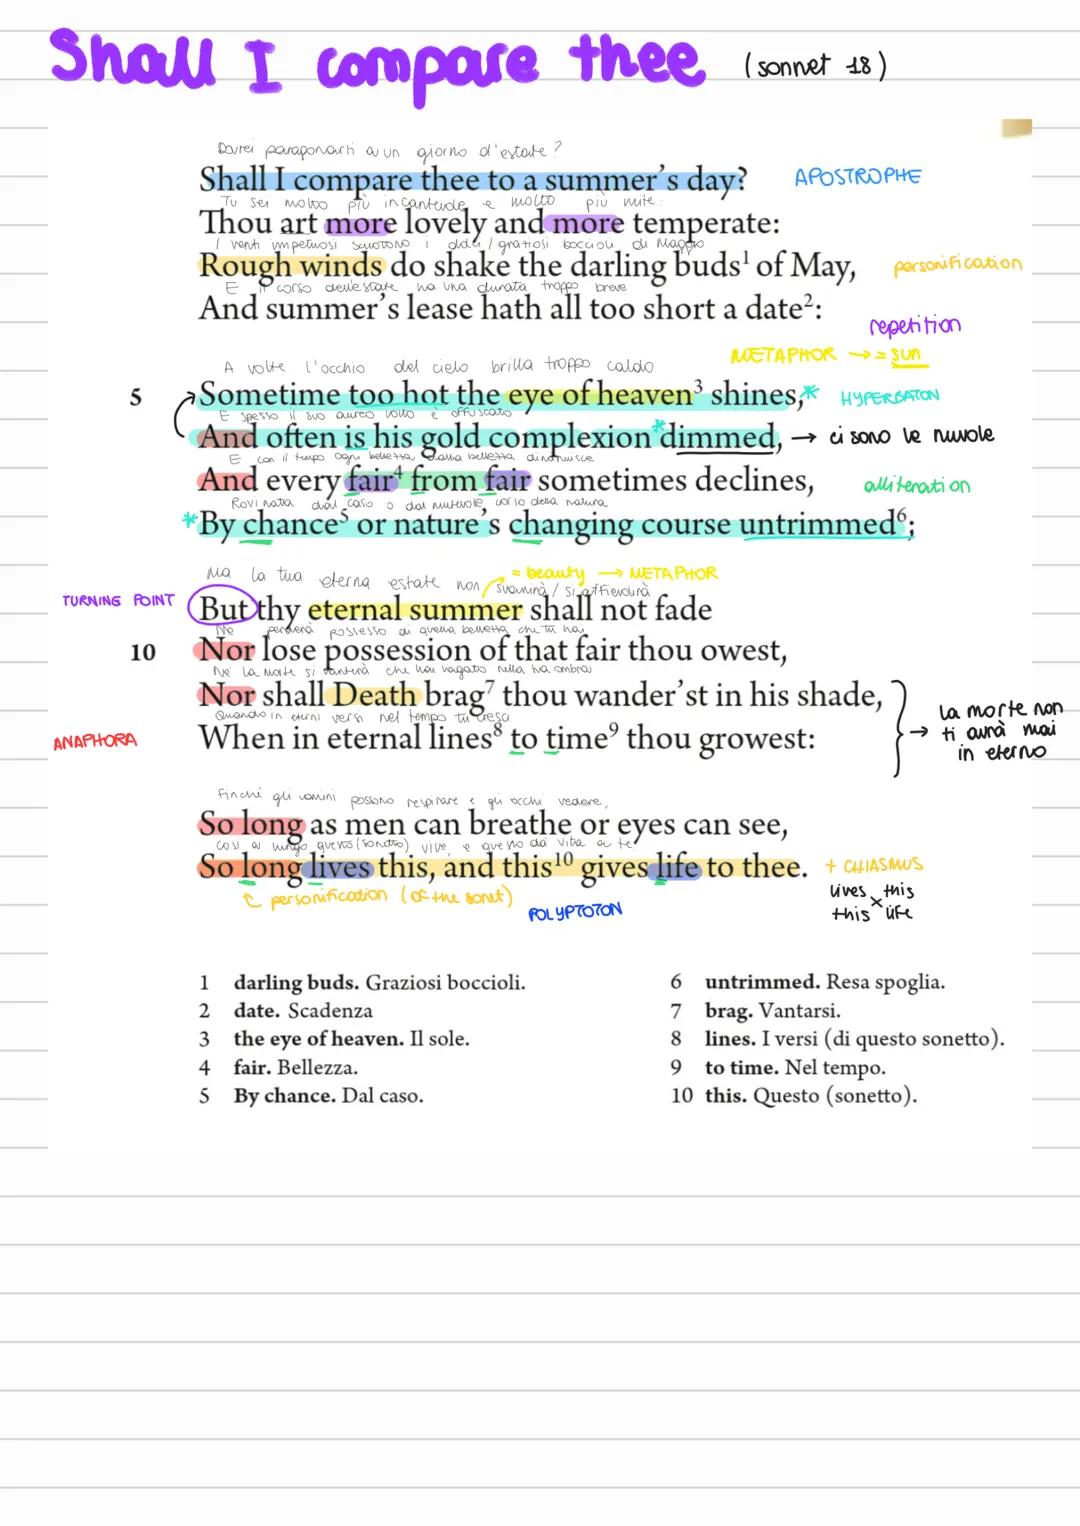 Shall I compare thee (sonnet 18)
Dovrei paragonarti a un giorno d'estate?
Shall I compare thee to a summer's day? APOSTROPHE
Tu sei molto più incantevole e molto più mite:
Thou art more lovely and more temperate:
I venti impetuosi scuotono i dolci / graziosi boccioli di Maggio
Rough winds do shake the darling buds¹ of May, personification
E il corso dell'estate ha una durata troppo breve
And summer's lease hath all too short a date²:
repetition
METAPHOR → = sun
A volte l'occhio del cielo brilla troppo caldo
5 Sometime too hot the eye of heaven³ shines,* HYPERBATON
E spesso il suo aureo volto è offuscato
And often is his gold complexion *dimmed, → ci sono le nuvole
E con il tempo ogni bellezza dalla bellezza diminuisce
And every fair⁴ from fair sometimes declines, alliteration
Rovinata dal caso o dal mutevole corso della natura
*By chance⁵ or nature's changing course untrimmed⁶;
= beauty → METAPHOR
Ma la tua eterna estate non svanirà / si affievolirà
TURNING POINT But thy eternal summer shall not fade
Né perderà possesso di quella bellezza che tu hai
10 Nor lose possession of that fair thou owest,
Né la morte si vanterà che hai vagato nella sua ombra
Nor shall Death brag⁷ thou wander'st in his shade,
Quando in eterni versi nel tempo tu cresci
ANAPHORA When in eternal lines⁸ to time⁹ thou growest:
→ la morte non
ti avrà mai
in eterno
Finché gli uomini possono respirare e gli occhi vedere,
So long as men can breathe or eyes can see,
così a lungo questo (sonetto) vive, e questo dà vita a te
So long lives this, and this¹⁰ gives life to thee. + CHIASMUS
personification (of the sonet)
POLYPTOTON
lives this
x
this life
1 darling buds. Graziosi boccioli.
2 date. Scadenza
3 the eye of heaven. Il sole.
4 fair. Bellezza.
5 By chance. Dal caso.
6 untrimmed. Resa spoglia.
7 brag. Vantarsi.
8 lines. I versi (di questo sonetto).
9 to time. Nel tempo.
10 this. Questo (sonetto).